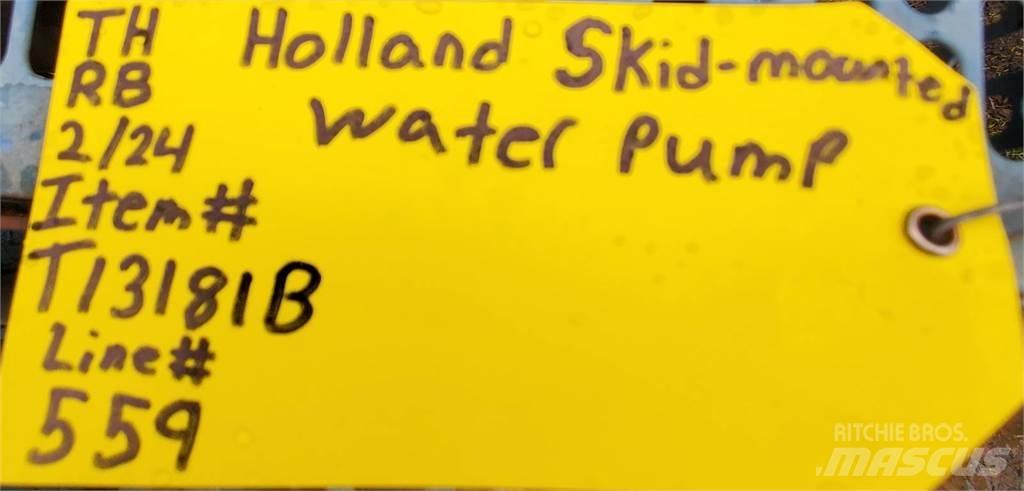 TH
RB
2/24
Item#
T13181B
Line#
559
Holland Skid-mounted
Water Pump
RITCHIE BROS.
MASCUS